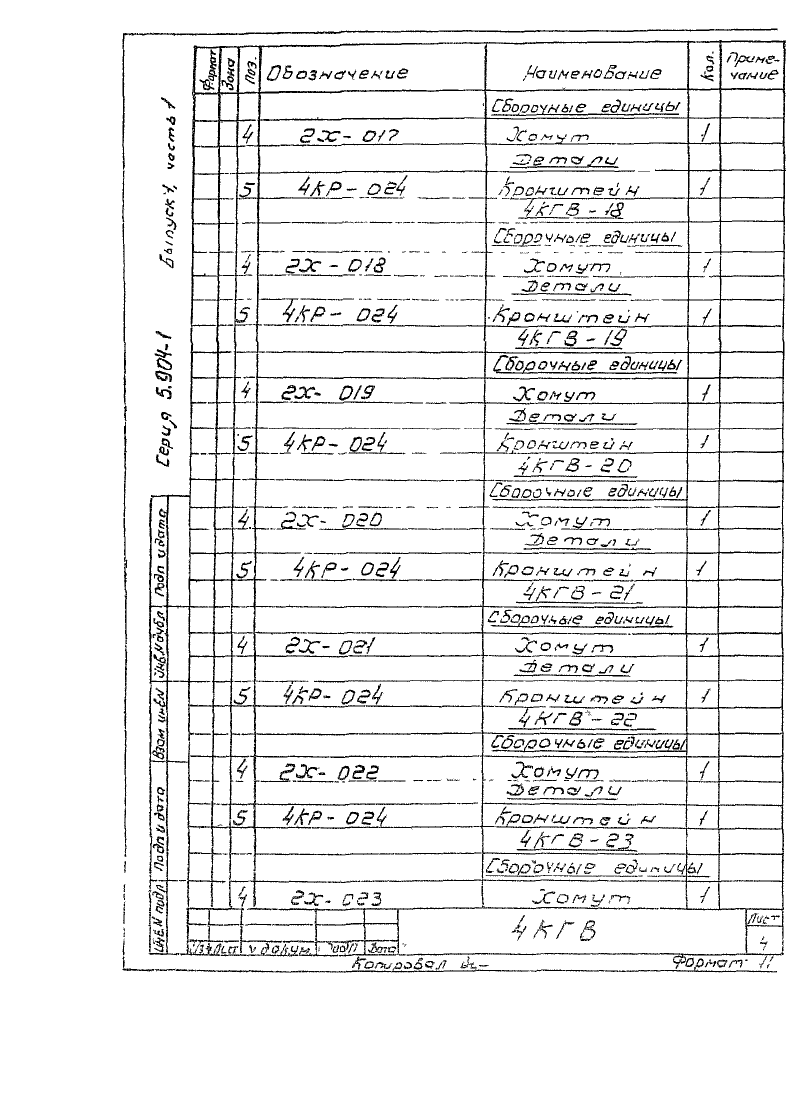 Серия 5.904-1 Выпуск 1, часть 1
Формат Зона Поз. Обозначение Наименование Кол. Примечание
Сборочные единицы
4 2Х-017 Хомут 1
Детали
5 4КР-024 Кронштейн 1
4КГВ-18
Сборочные единицы
4 2Х-018 Хомут 1
Детали
5 4КР-024 Кронштейн 1
4КГВ-19
Сборочные единицы
4 2Х-019 Хомут 1
Детали
5 4КР-024 Кронштейн 1
4КГВ-20
Сборочные единицы
4 2Х-020 Хомут 1
Детали
5 4КР-024 Кронштейн 1
4КГВ-21
Сборочные единицы
4 2Х-021 Хомут 1
Детали
5 4КР-024 Кронштейн 1
4КГВ-22
Сборочные единицы
4 2Х-022 Хомут 1
Детали
5 4КР-024 Кронштейн 1
4КГВ-23
Сборочные единицы
4 2Х-023 Хомут 1
Инв.N подл Подп и дата Взам инв.N Инв.N дубл Подп и дата
4КГВ
Лист
4
Изм Лист N докум. Подп Дата
Копировал
Формат 11